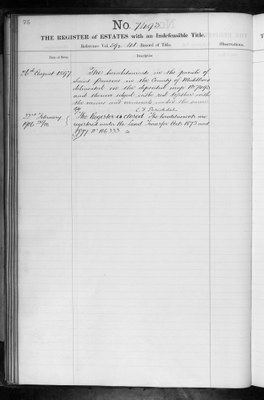 No. 7493
THE REGISTER of ESTATES with an Indefeasible Title.
Reference Vol. Record of Title.
Observations.
Date of Entry
Description
26th August 1897
Five hereditaments in the parish of
Saint Pancras in the County of Middlesex
delineated on the deposited map No 7493
and thereon edged with red together with
the mines and minerals under the same
22nd February
The Register is closed. The hereditaments are
registered under the Land Transfer Acts 1875 and
1897